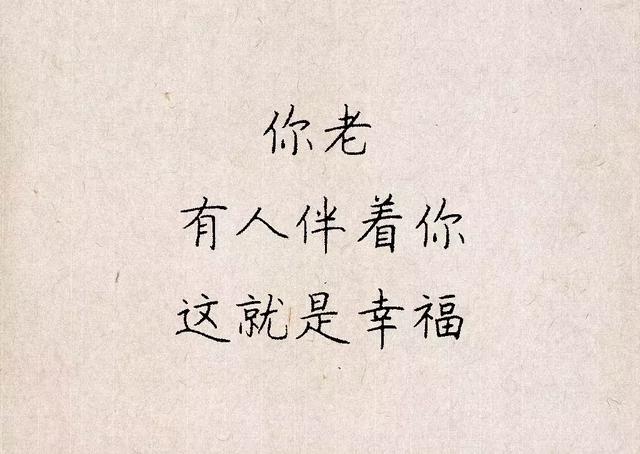 你老
有人伴着你
这就是幸福